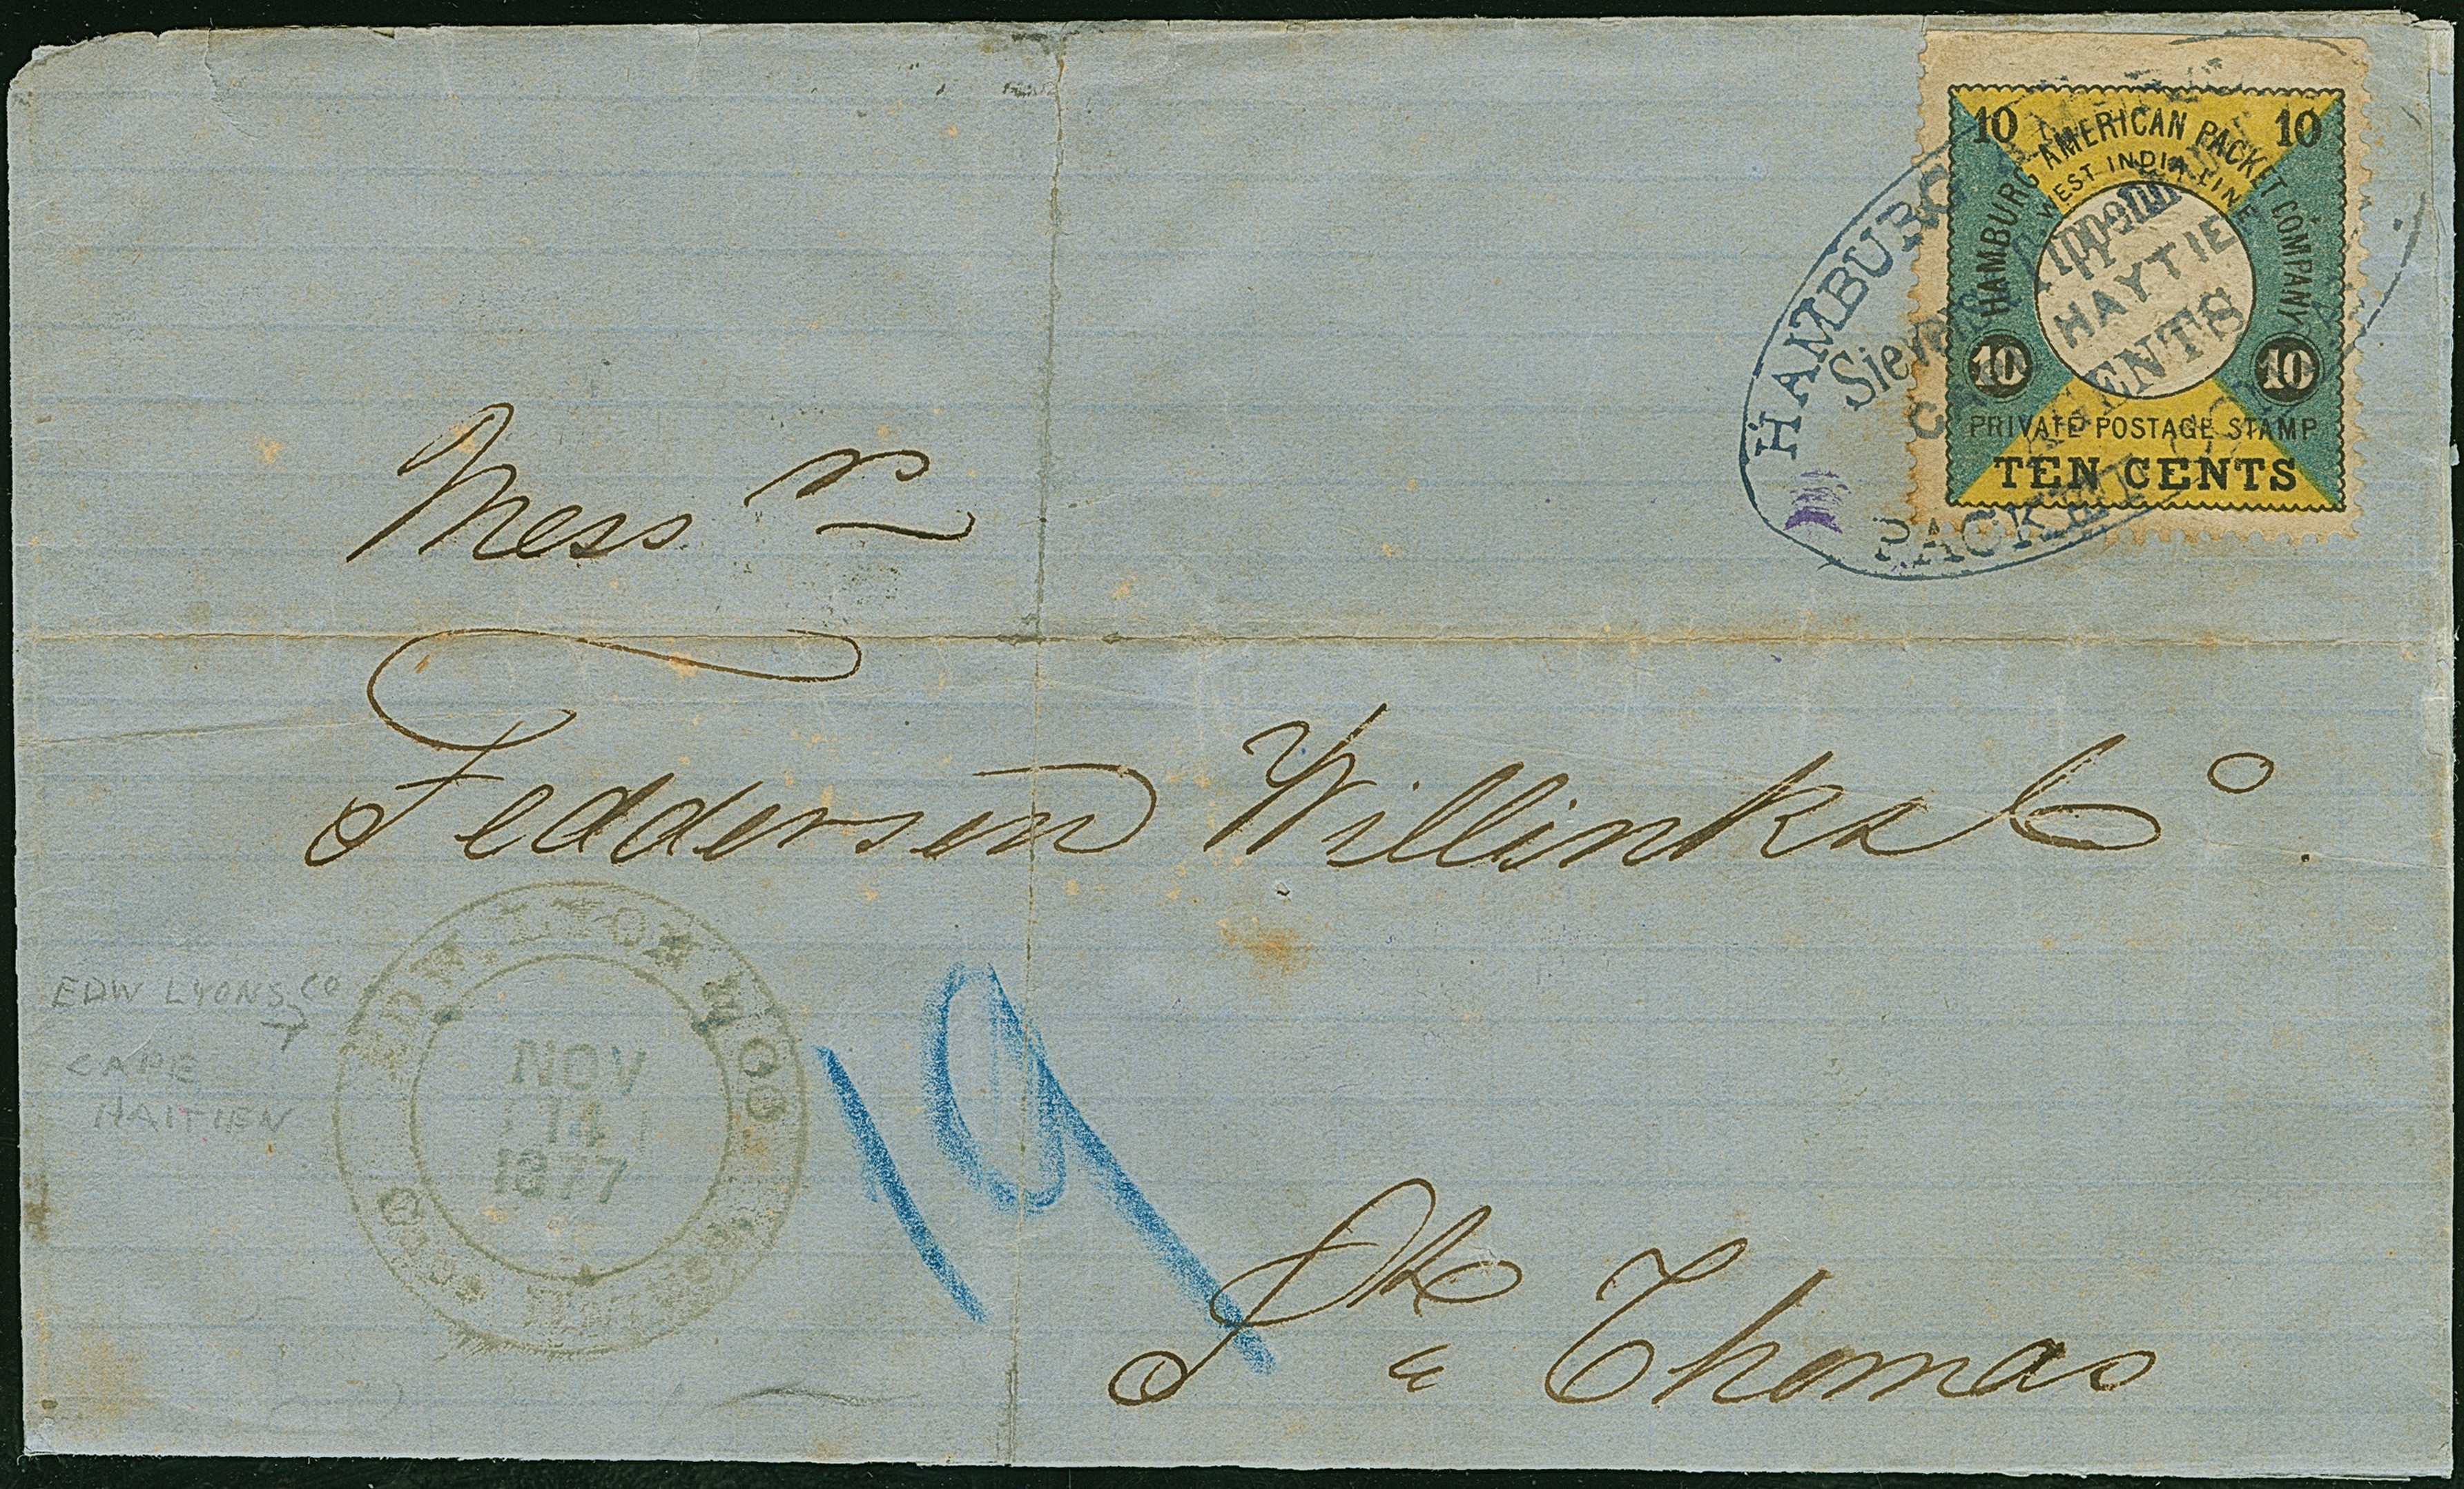 10 10
HAMBURG AMERICAN PACKET COMPANY
WEST INDIA LINE
10 10
PRIVATE POSTAGE STAMP
TEN CENTS
HAMBURG
HAYTIE
PACKET
Mess rs
Feddersen Willink & Co.
EDW LYONS CO
CAPE
HAITIEN
EDW. LYON
NOV
14
1877
19
St Thomas